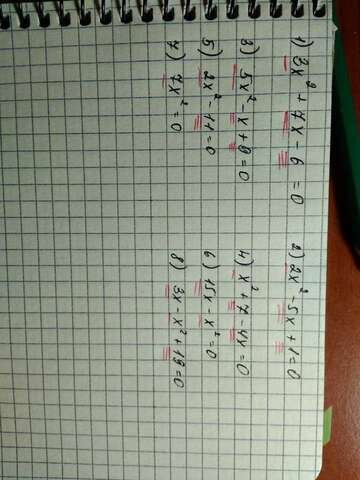 1) 3x² + 7x - 6 = 0
2) 2x² - 5x + 1 = 0
3) 5x² - x + 8 = 0
4) x² + 7 - 4x = 0
5) 2x² - 11 = 0
6) 15x - x² = 0
7) 7x² = 0
8) 3x - x² + 19 = 0